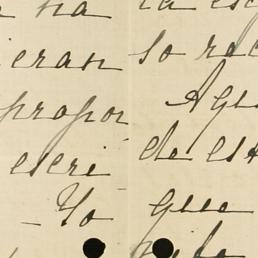 na
eran
propor
escri
- Yo
la esc
so rec
de est
que